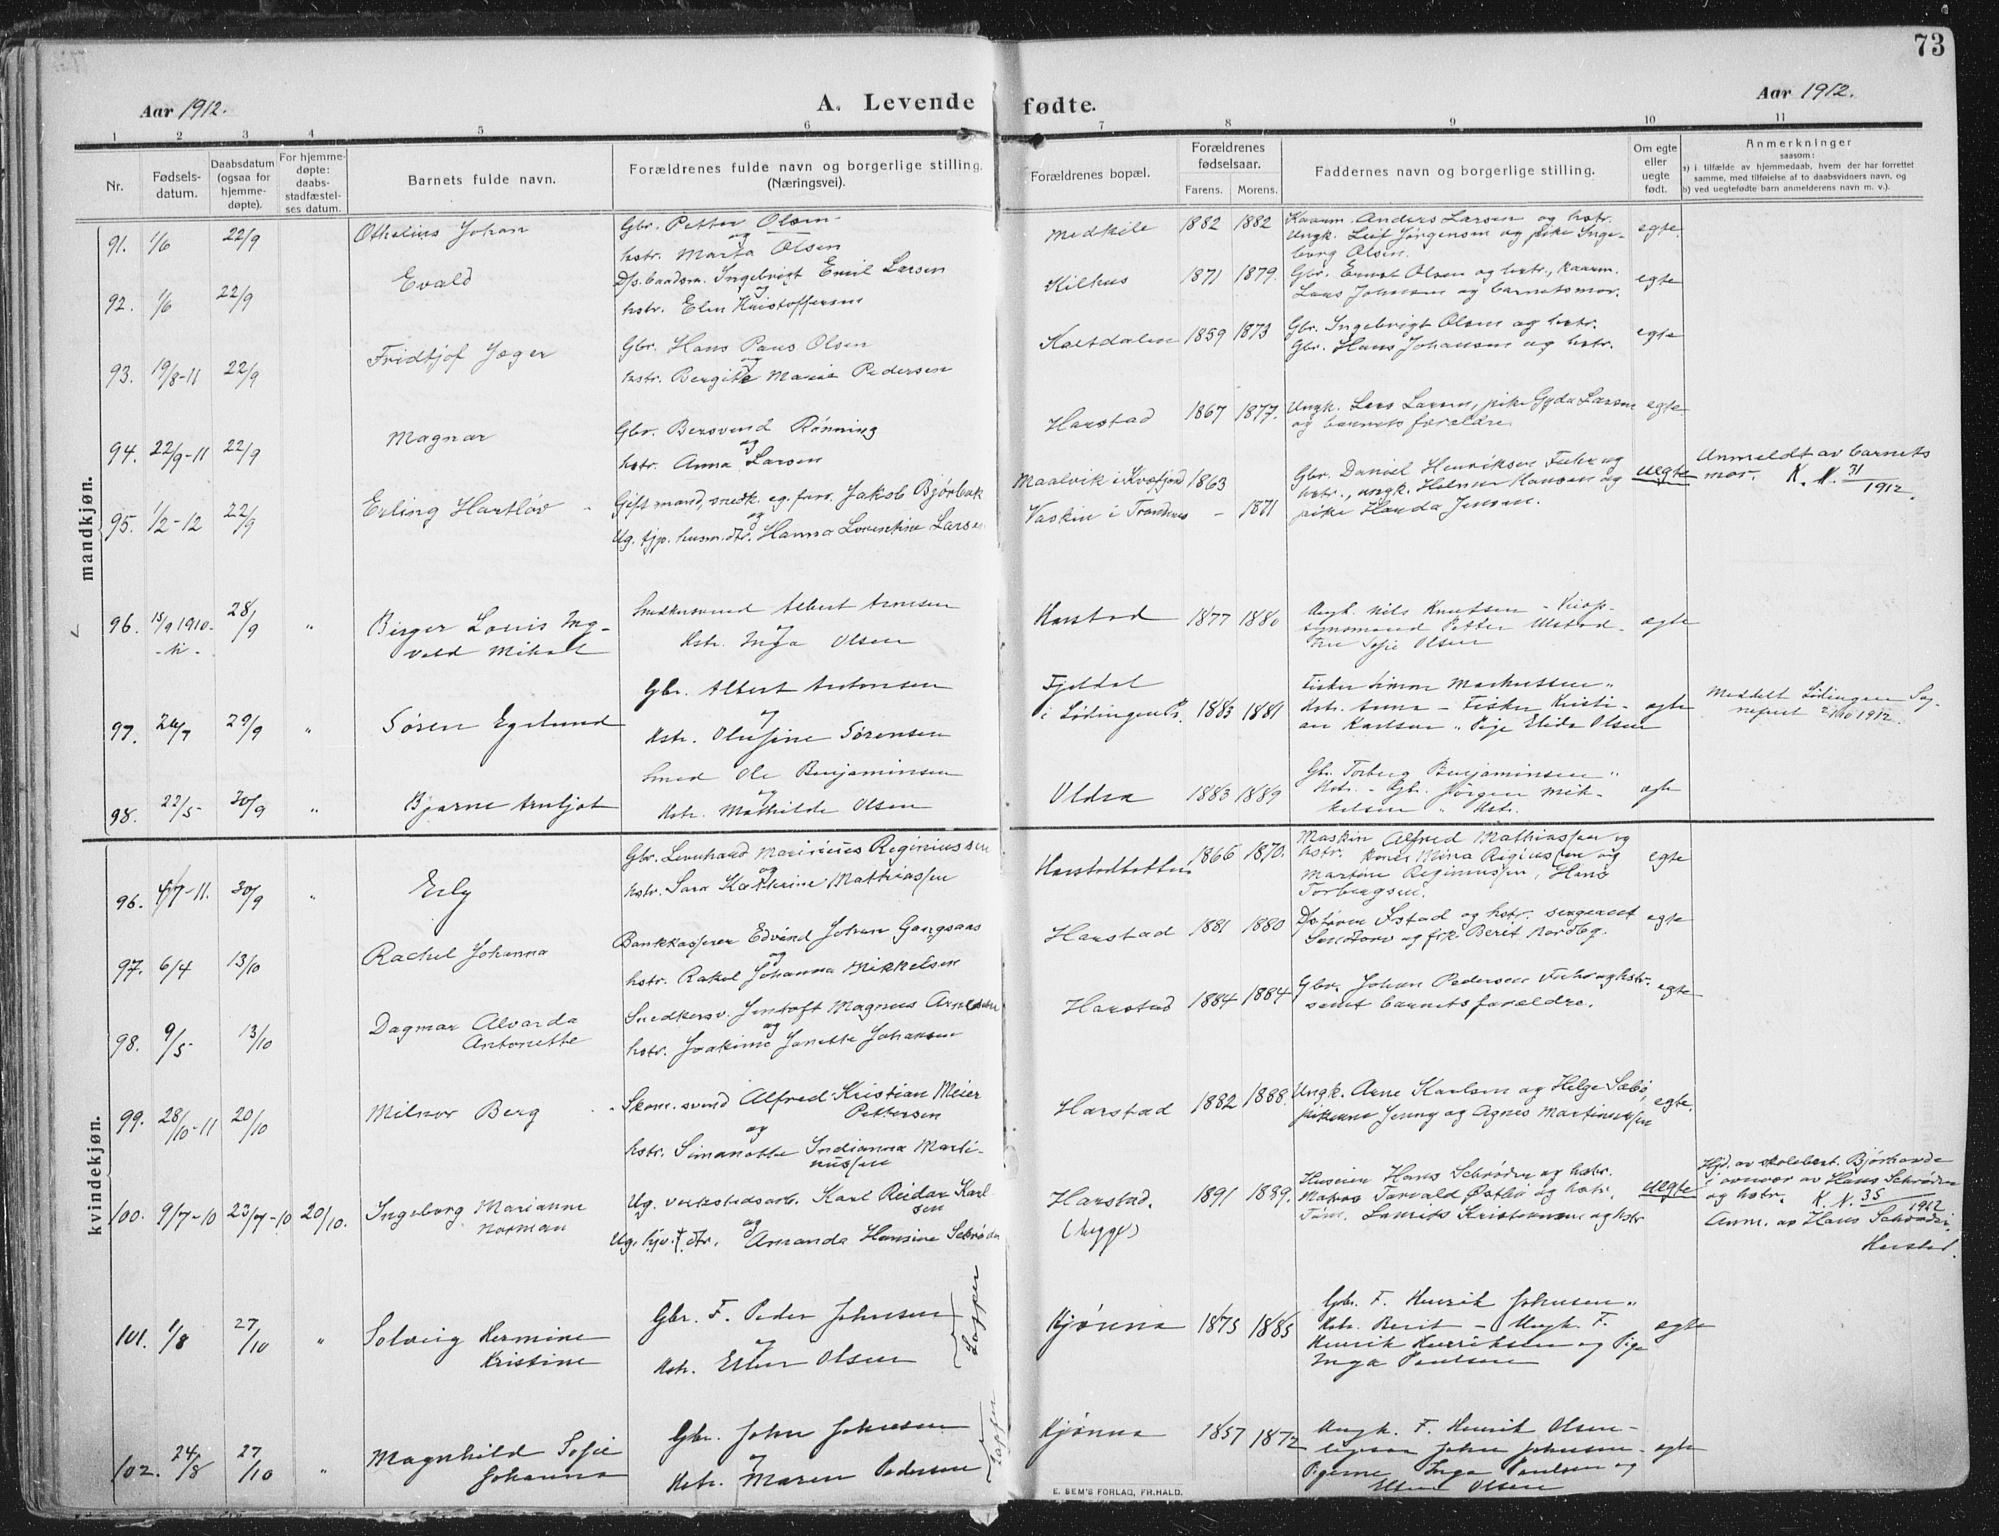 73
Aar 1912.
A. Levende fødte.
Aar 1912.
1 2 3 4 5 6 7 8 9 10 11
Nr.
Fødsels-
datum.
Daabsdatum
(ogsaa for
hjemme-
døpte).
For hjemme-
døpte:
daabs-
stadfæstel-
ses datum.
Barnets fulde navn.
Forældrenes fulde navn og borgerlige stilling.
(Næringsvei).
Forældrenes bopæl.
Forældrenes
fødselsaar.
Farens. Morens.
Faddernes navn og borgerlige stilling.
Om egte
eller
uegte
født.
Anmerkninger
saasom:
a) i tilfælde av hjemmedaab, hvem der har forrettet
samme, med tilføielse af to daabsvidners navn, og
b) ved uegtefødte barn anmelderens navn m. v.).
mandkjøn.
91. 1/6 22/9 Othelius Johan
Gbr. Petter Olsen
og
hstr. Marta Olsen
Medkile 1882 1882
Kaarm. Anders Larsen og hstr.
Ungk. Leif Jørgensen og pike Inge-
borg Olsen.
egte.
92. 1/6 22/9 Evald
D/s. baadsm. Ingebrigt Emil Larsen
og
hstr. Elen Kristoffersen
Kilhus 1871 1879.
Gbr. Ernst Olsen og hstr., kaarm.
Lars Johnsen og barnets mor.
egte
93. 19/8-11 22/9 Fridtjof Jæger
Gbr. Hans Paus Olsen
og
hstr. Bergite Marie Pedersen
Kastdalen 1859 1873
Gbr. Ingebrigt Olsen og hstr.
Gbr. Hans Johansen og hstr.
egte
94. 22/9-11 22/9 Magnar
Gbr. Bersvend Rønning
og
hstr. Anna Larsen
Harstad 1867 1877.
Ungk. Lars Larsen, pike Gyda Larsen
og barnets forældre
egte
95. 1/2-12 22/9 Erling Hartløv
Gift mand, snedk. eg. fars. Jakob Bjørbæk
og
Ug. tjp. husm. dtr. Hanna Lorentine Larsen
Maalvik i Kvæfjord 1863
Vaskin i Trondenes - 1871
Gbr. Daniel Henriksen Fuhr og
hstr., ungk. Helmer Hansen og
pike Handa Jensen.
uegte
Anmeldt av barnets
mor. K. N. 31/1912.
96. 15/9 1910. 28/9 " Birger Louis Ing-
vald Mikal
Snedkersvend Albert Arnesen
og
Hstr. Inga Olsen
Harstad 1877 1880
Ungk. Nils Knutsen - Kiop-
synsmand Petter Ulstad -
Fru Sofie Olsen
egte
97. 24/7 29/9 " Søren Egelund
Gbr. Albert Antonsen
og
Hstr. Olufine Sørensen
Fjeldal
i Lødingen Ps. 1883 1881
Fisker Simon Markussen "
Hstr. Anna - Fisker Kristi-
an Karlsen " Pige Elida Olsen
egte
Meddelt Lødingen Sog-
nepræst 2/10 1912.
98. 22/5 30/9 " Bjarne Arnljot
Smed Ole Benjaminsen
og
Hstr. Mathilde Olsen
Aldra 1883 1889
Gbr. Torberg Benjaminsen "
Hstr. - Gbr. Jørgen Mik-
kelsen " Hstr.
egte
kvindekjøn.
96. 4/7-11. 30/9 " Erly
Gbr. Leonhard Marinius Reginiussen
og
hstr. Sara Kathrine Mathiassen
Harstadbotten 1866 1870.
Maskin Alfred Mathiassen og
hstr. Kone Mina Rigiussen og
Martine Reginiussen, Hans
Torbergsen.
egte
97. 6/4 13/10 Rachel Johanna
Bankkasserer Edvind Johan Gangsaas
og
hstr. Rakel Johanna Mikkelsen
Harstad 1881 1880
D/s. fører Istad og hstr. sergeant
og frk. Berit Nordbg.
egte
98. 9/5 13/10 Dagmar Alvarda
Antonette
Snedkersv. Jentoft Magnus Arnesen
og
hstr. Joakime Janette Johansen
Harstad 1884 1884
Gbr. Johan Pedersen Fuhr og hstr.
samt barnets forældre.
egte
99. 28/10-11 20/10 Milnor Berg
Skom. svend Alfred Kristian Meier
Pettersen
og
hstr. Simonette Indianna Marti-
nussen
Harstad 1882 1888.
Ungk. Arne Karlsen og Helge Sæbø,
pikerne Jenny og Agnes Martinussen
egte.
100. 9/7-10 23/7-10 20/10. Ingeborg Marianne
Norman
Ug. verkstedsarb. Karl Reidar Karl-
sen
og
Ug. hjv. dtr. Amanda Hansine Schrøder
Harstad. 1891 1889.
(bygge)
Husier Hans Schrøder og hstr.
Matros Torvald Østbø og hstr.
Tøm. Lauriks Kristensen og hstr
uegte
Hjd. av skolebest. Bjørhovde
i nærvær av Hans Schrøder
og hstr. K. N. 35/1912
Anm. av Hans Schrøder,
Harstad.
101. 1/8 27/10 " Solveig Hermine
Kristine
Gbr. F. Peder Johnsen
og
Hstr. Ellen Olsen
Lapper
Kjønna 1875 1885
Gbr. F. Henrik Johnsen "
Hstr. Berit - Ungk. F.
Henrik Henriksen og Pige
Inga Paulsen
egte
102. 24/8 27/10 " Magnhild Sofie
Johanna
Gbr. John Johnsen
og
Hstr. Maren Pedersen
Lapper
Kjønna 1857 1872
Ungk. F. Henrik Olsen -
John Johnsen -
Pigerne Inga Paulsen og
Ellen Olsen
egte
E. SEM'S FORLAG, FR.HALD.